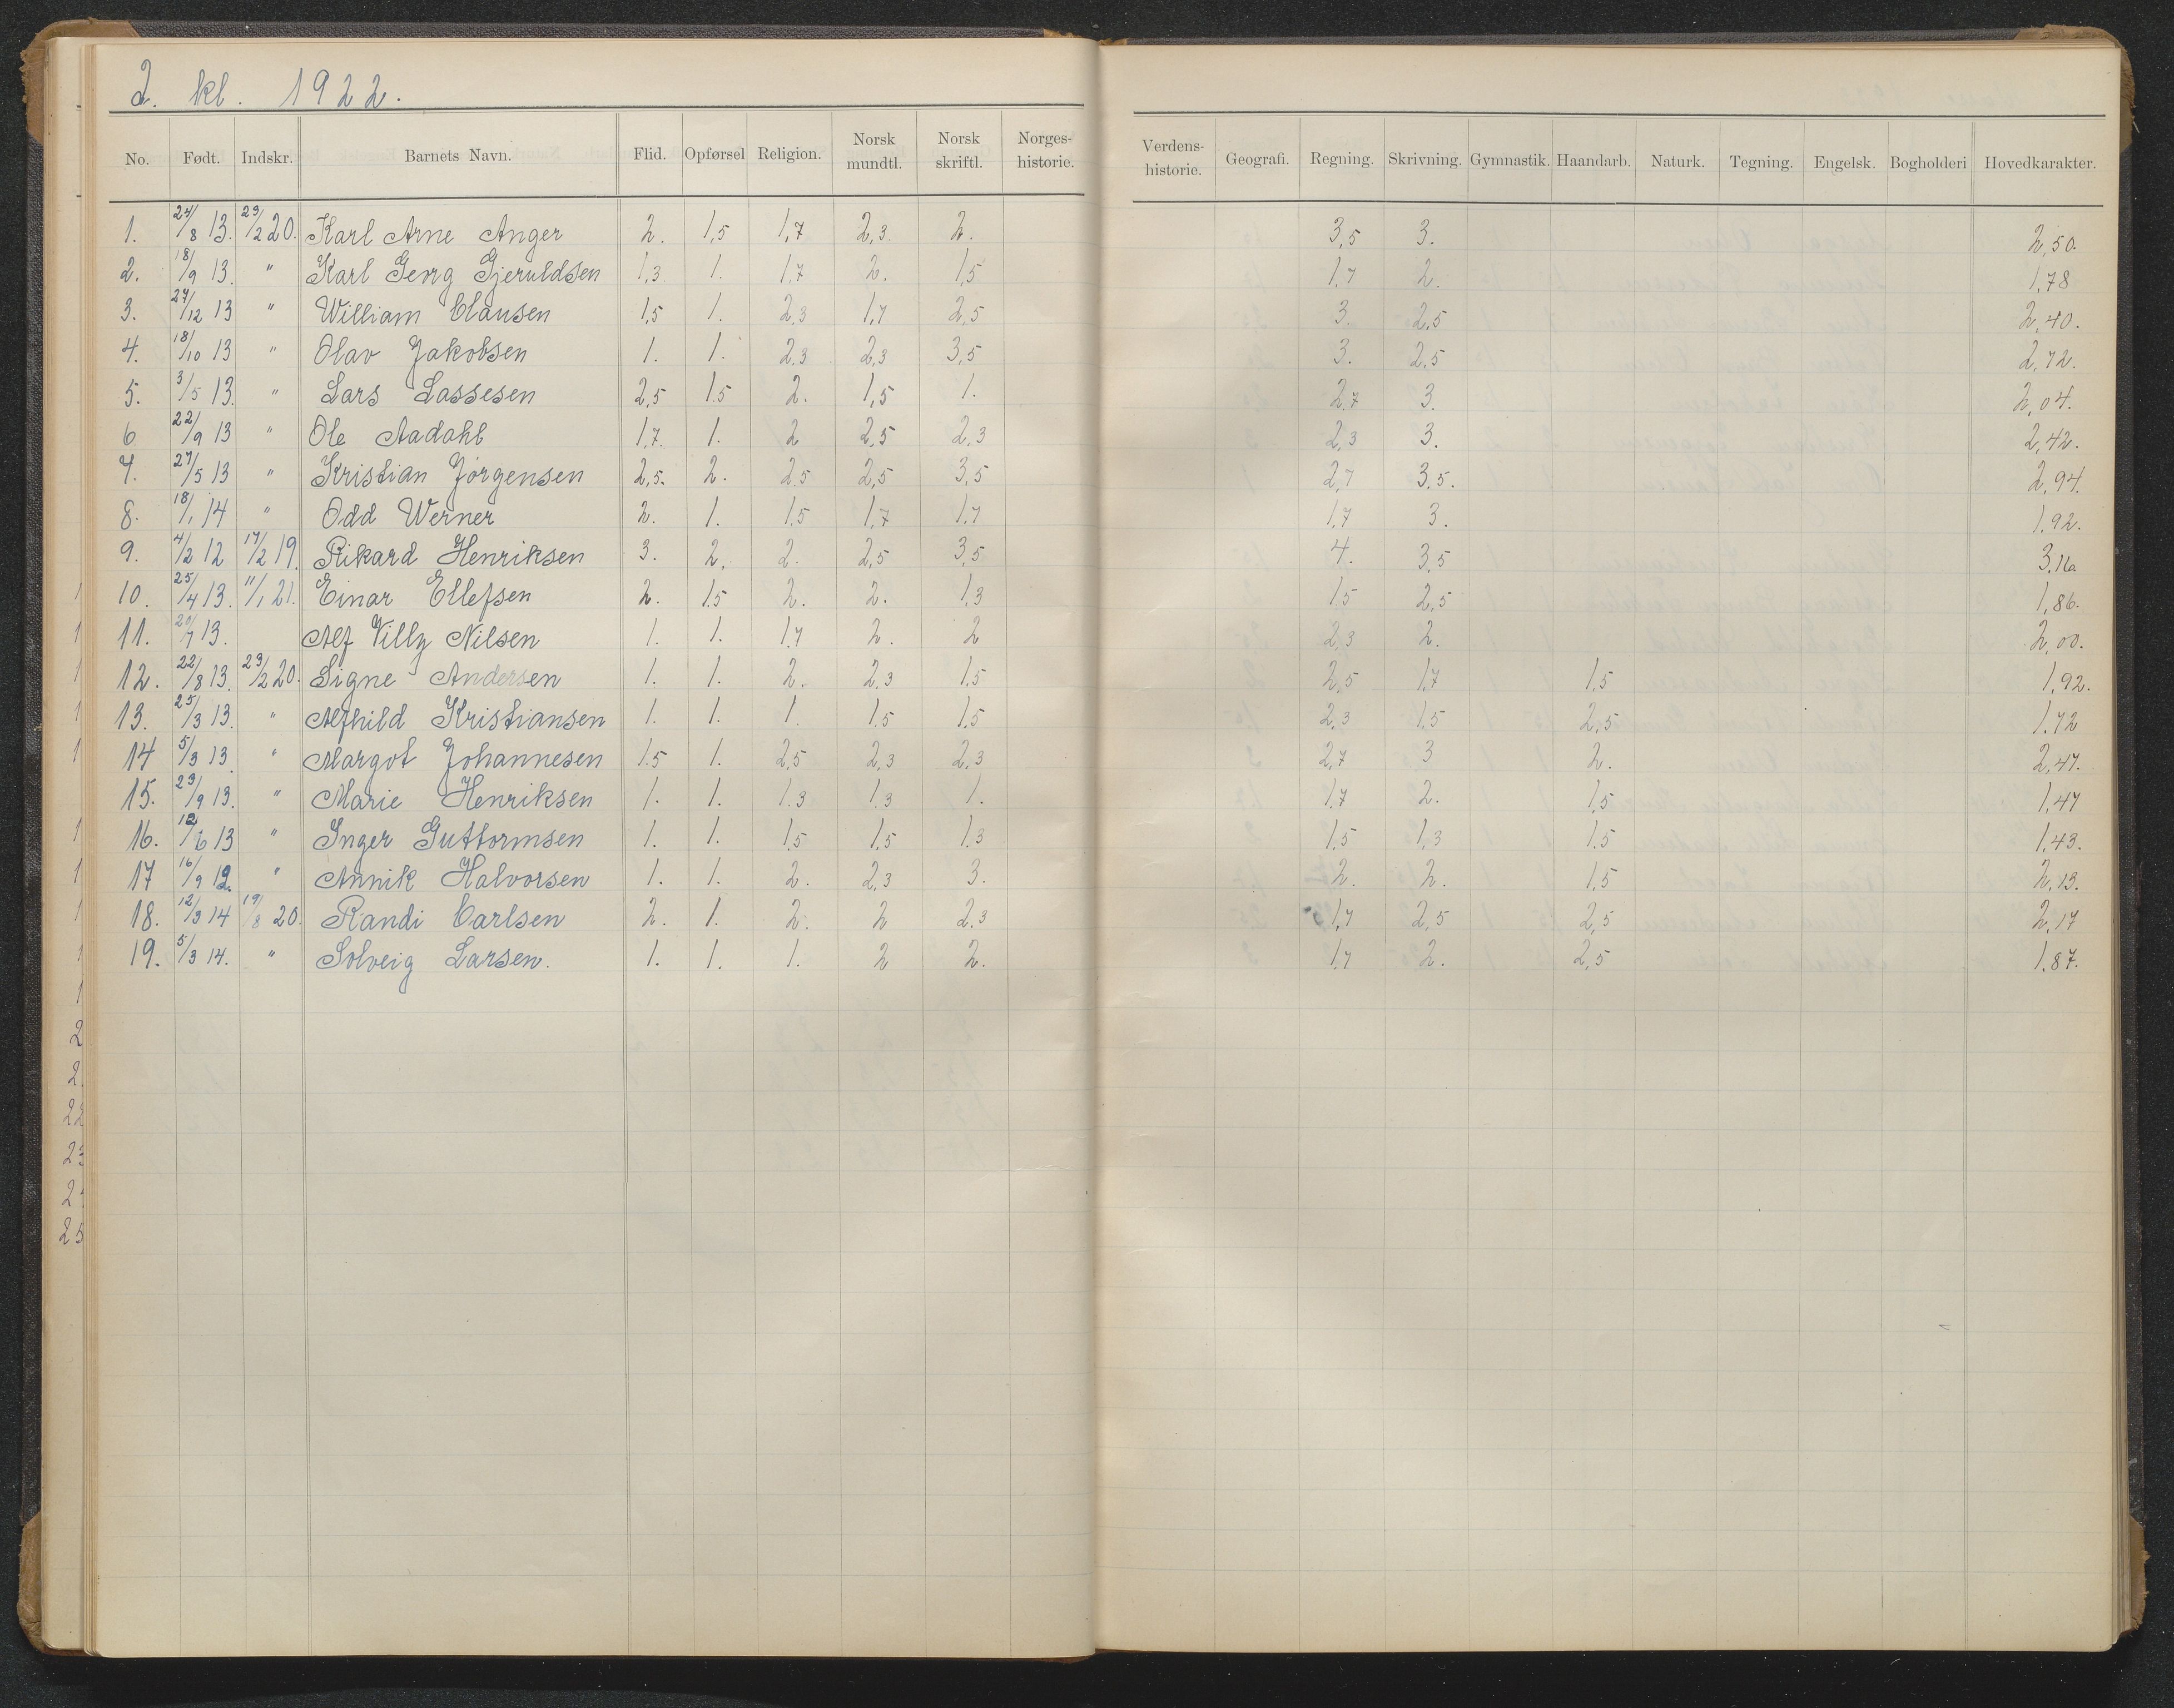 2. kl. 1922.
No. Født. Indskr. Barnets Navn. Flid. Opførsel Religion. Norsk mundtl. Norsk skriftl. Norges-historie. Verdens-historie. Geografi. Regning. Skrivning. Gymnastik. Haandarb. Naturk. Tegning. Engelsk. Bogholderi Hovedkarakter.
1. 24/8 13. 23/2 20. Karl Arne Anger 2. 1,5 1,7 2,3 2. 3,5 3. 2,50.
2. 18/9 13. " Karl Georg Gjeruldsen 1,3 1. 1,7 2. 1,5 1,7 2. 1,78
3. 27/12 13 " William Clausen 1,5 1. 2,3 1,7 2,5 3. 2,5 2,40.
4. 18/10 13 " Olav Jakobsen 1. 1. 2.3 2,3 3,5 3. 2,5 2,72.
5. 3/5 13. " Lars Lassesen 2,5 1.5 2. 1,5 1. 2,7 3. 2,04.
6 22/9 13 " Ole Aadahl 1,7. 1. 2 2,5 2,3 2,3 3. 2,42.
7. 27/5 13 " Kristian Jørgensen 2,5. 2. 2,5 2,5 3,5 2,7 3,5. 2,94.
8. 18/1 14 " Odd Werner 2. 1. 1.5 1,7 1,7 1,7 3. 1,92.
9. 4/2 12 17/2 19. Rikard Henriksen 3. 2. 2. 2,5 3,5 4. 3,5
10. 25/4 13. 11/1 21. Einar Ellefsen 2. 1.5 2. 2. 1,3 1.5 2,5 1,86.
11. 20/7 13. Alf Villy Nilsen 1. 1. 1.7 2. 2 2,3 2. 2,00.
12. 22/8 13. 23/2 20. Signe Andersen 1. 1. 2. 2,3 1.5 2,5 1,7 1.5 1,92.
13. 25/3 13. " Alfhild Kristiansen 1. 1. 1. 1.5 1.5 2.3 1.5 2,5 1.72
14 5/3 13. " Margot Johannesen 1.5 1. 2,5 2,3 2,3 2,7 3 2. 2,47.
15. 23/9 13. " Marie Henriksen 1. 1. 1.3 1.3 1. 1.7 2. 1.5 1,47
16. 12/6 13 " Inger Guttormsen 1. 1. 1.5 1.5 1.3 1.5 1,3 1.5 1,43.
17 16/9 12. " Annik Halvorsen 1. 1. 2. 2,3 3. 2. 2. 1,5 2,13.
18. 12/3 14 19/8 20. Randi Carlsen 2. 1. 2. 2 2.3 1,7 2,5 2,5 2,17
19. 5/3 14. " Solveig Larsen. 1. 1. 1. 2 2. 1.7 2. 2,5 1.87.